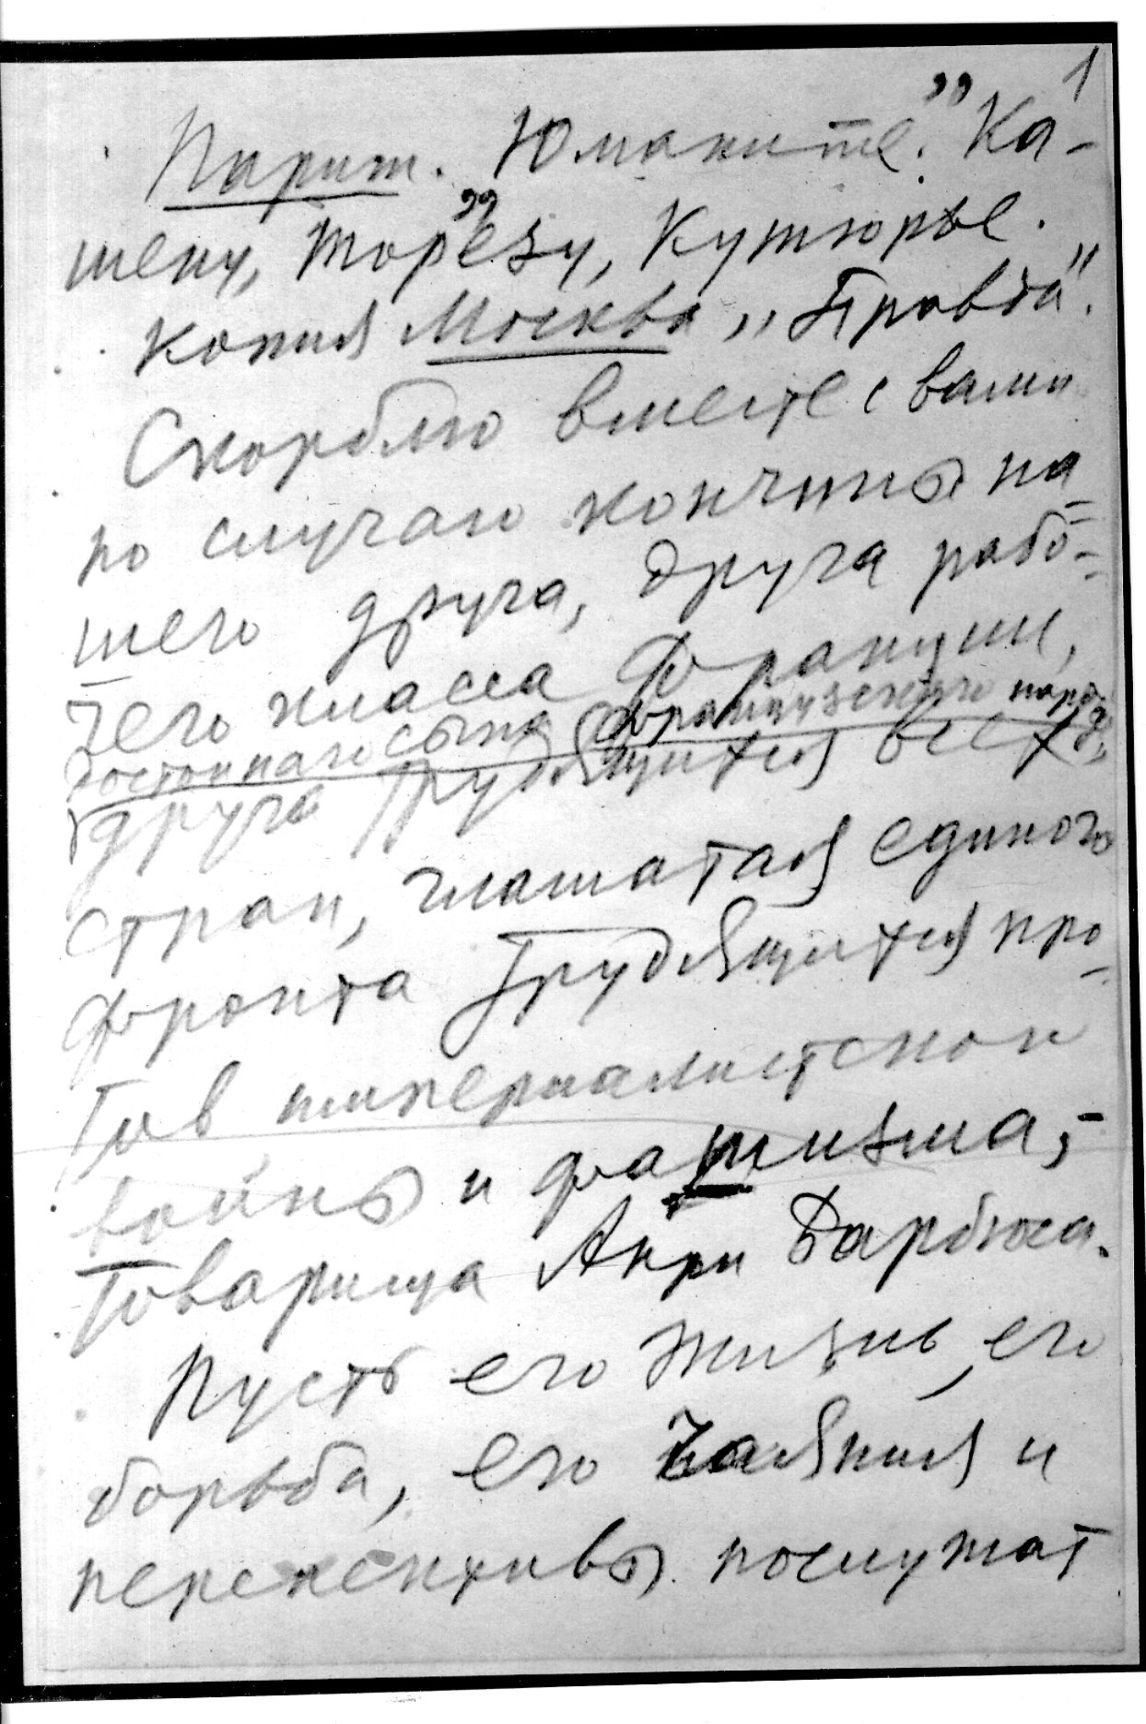 1
Париж. Юманите." Ка-
шену, Торезу, Кутюрье.
Копия Москва „Правда".
Скорблю вместе с вами
по случаю кончины на-
шего друга, друга рабо-
чего класса Франции,
достойного сына французского народа,
друга трудящихся всех
стран, глашатая единого
фронта трудящихся про-
тив империалистской
войны и фашизма, –
товарища Анри Барбюса.
Пусть его жизнь, его
борьба, его чаяния и
перспективы послужат